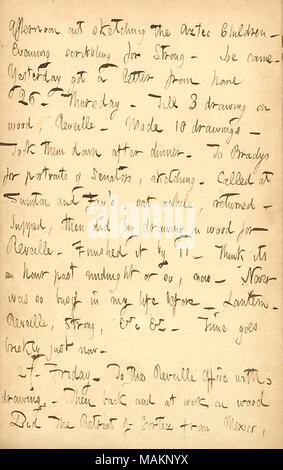 Afternoon out sketching the Aztec Children –
Evening scribbling for Strong – he came –
Yesterday got a letter from home
26 – Thursday – Till 3 drawing on
wood, Reveille – Made 10 drawings –
Took them down after dinner – To Bradys
for portraits of Senators, sketching – Called at
Swinton and Fay's, sat awhile, returned –
Supped, then did big drawing on wood for
Reveille – Finished it by 11 – Think its
an hour past midnight or so, now – Never
was so busy in my life before – Lantern –
Reveille, Strong, &c &c – Time goes
briskly just now –
27 – Friday – To the Reveille Office with
drawing – Then back and at work on wood
Did The Retreat of Cortez from Mexico,
alamy
Image ID: MAKNYX
www.alamy.com